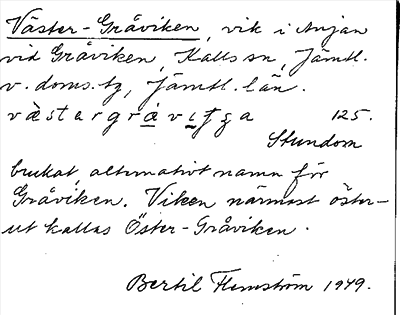 Väster-Gråviken, vik i Anjan
vid Gråviken, Kalls sn, Jämtl.
v. doms.tg, Jämtl. län.
västergråviʃga 125.
Stundom
brukat, alternativt namn för
Gråviken. Viken närmast öster-
ut kallas Öster-Gråviken.
Bertil Flemström 1949.